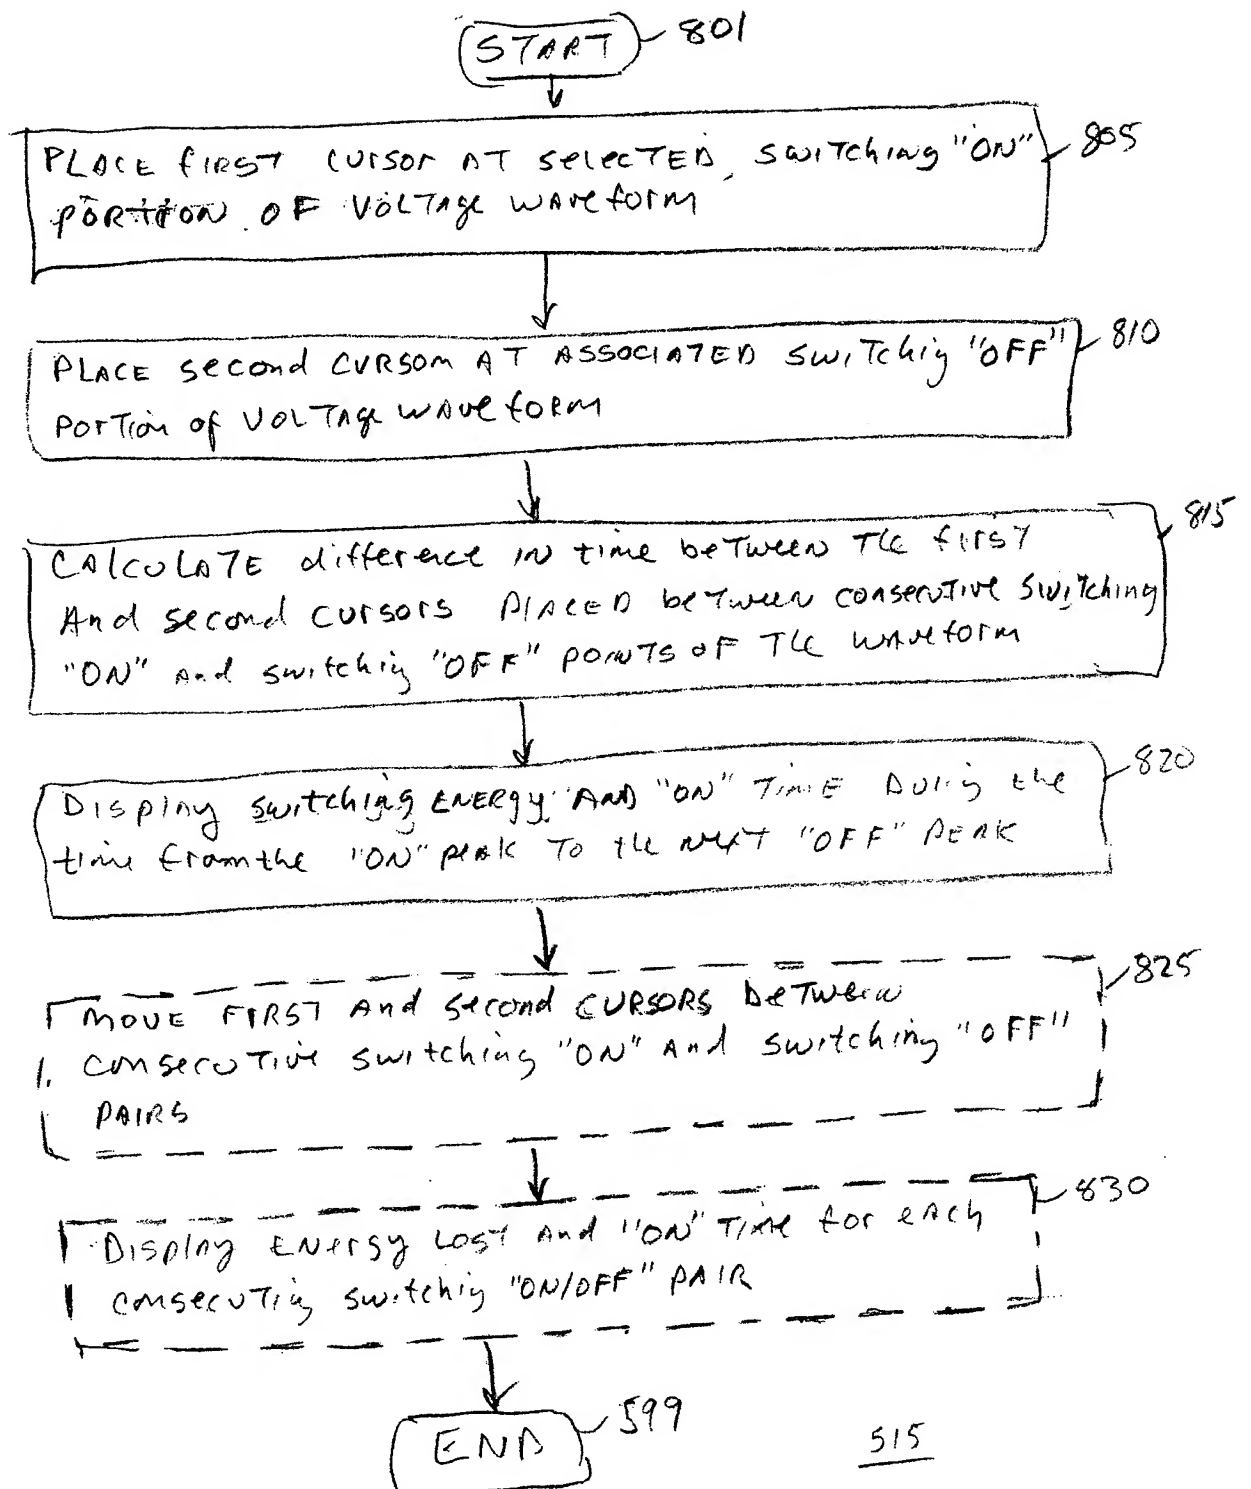 START 801
PLACE FIRST CURSOR AT SELECTED SWITCHING "ON" 805
PORTION OF VOLTAGE WAVEFORM
PLACE second CURSOR AT ASSOCIATED switching "OFF" 810
PORTion of VOLTAge wAveform
CALCULATE difference IN time beTween The first 815
And second cursors PLACED beTween consecutive switching
"ON" And switching "OFF" POINTS OF The wAveform
Display switching ENERgy AND "ON" TIME During the 820
time from the "ON" peak To the next "OFF" PEAK
MOVE FIRST And second CURSORS beTween 825
consecuTive switching "ON" And switching "OFF"
PAIRS
Display ENergy LOST And "ON" TIME for each 830
consecuTing switching "ON/OFF" PAIR
END 599
515